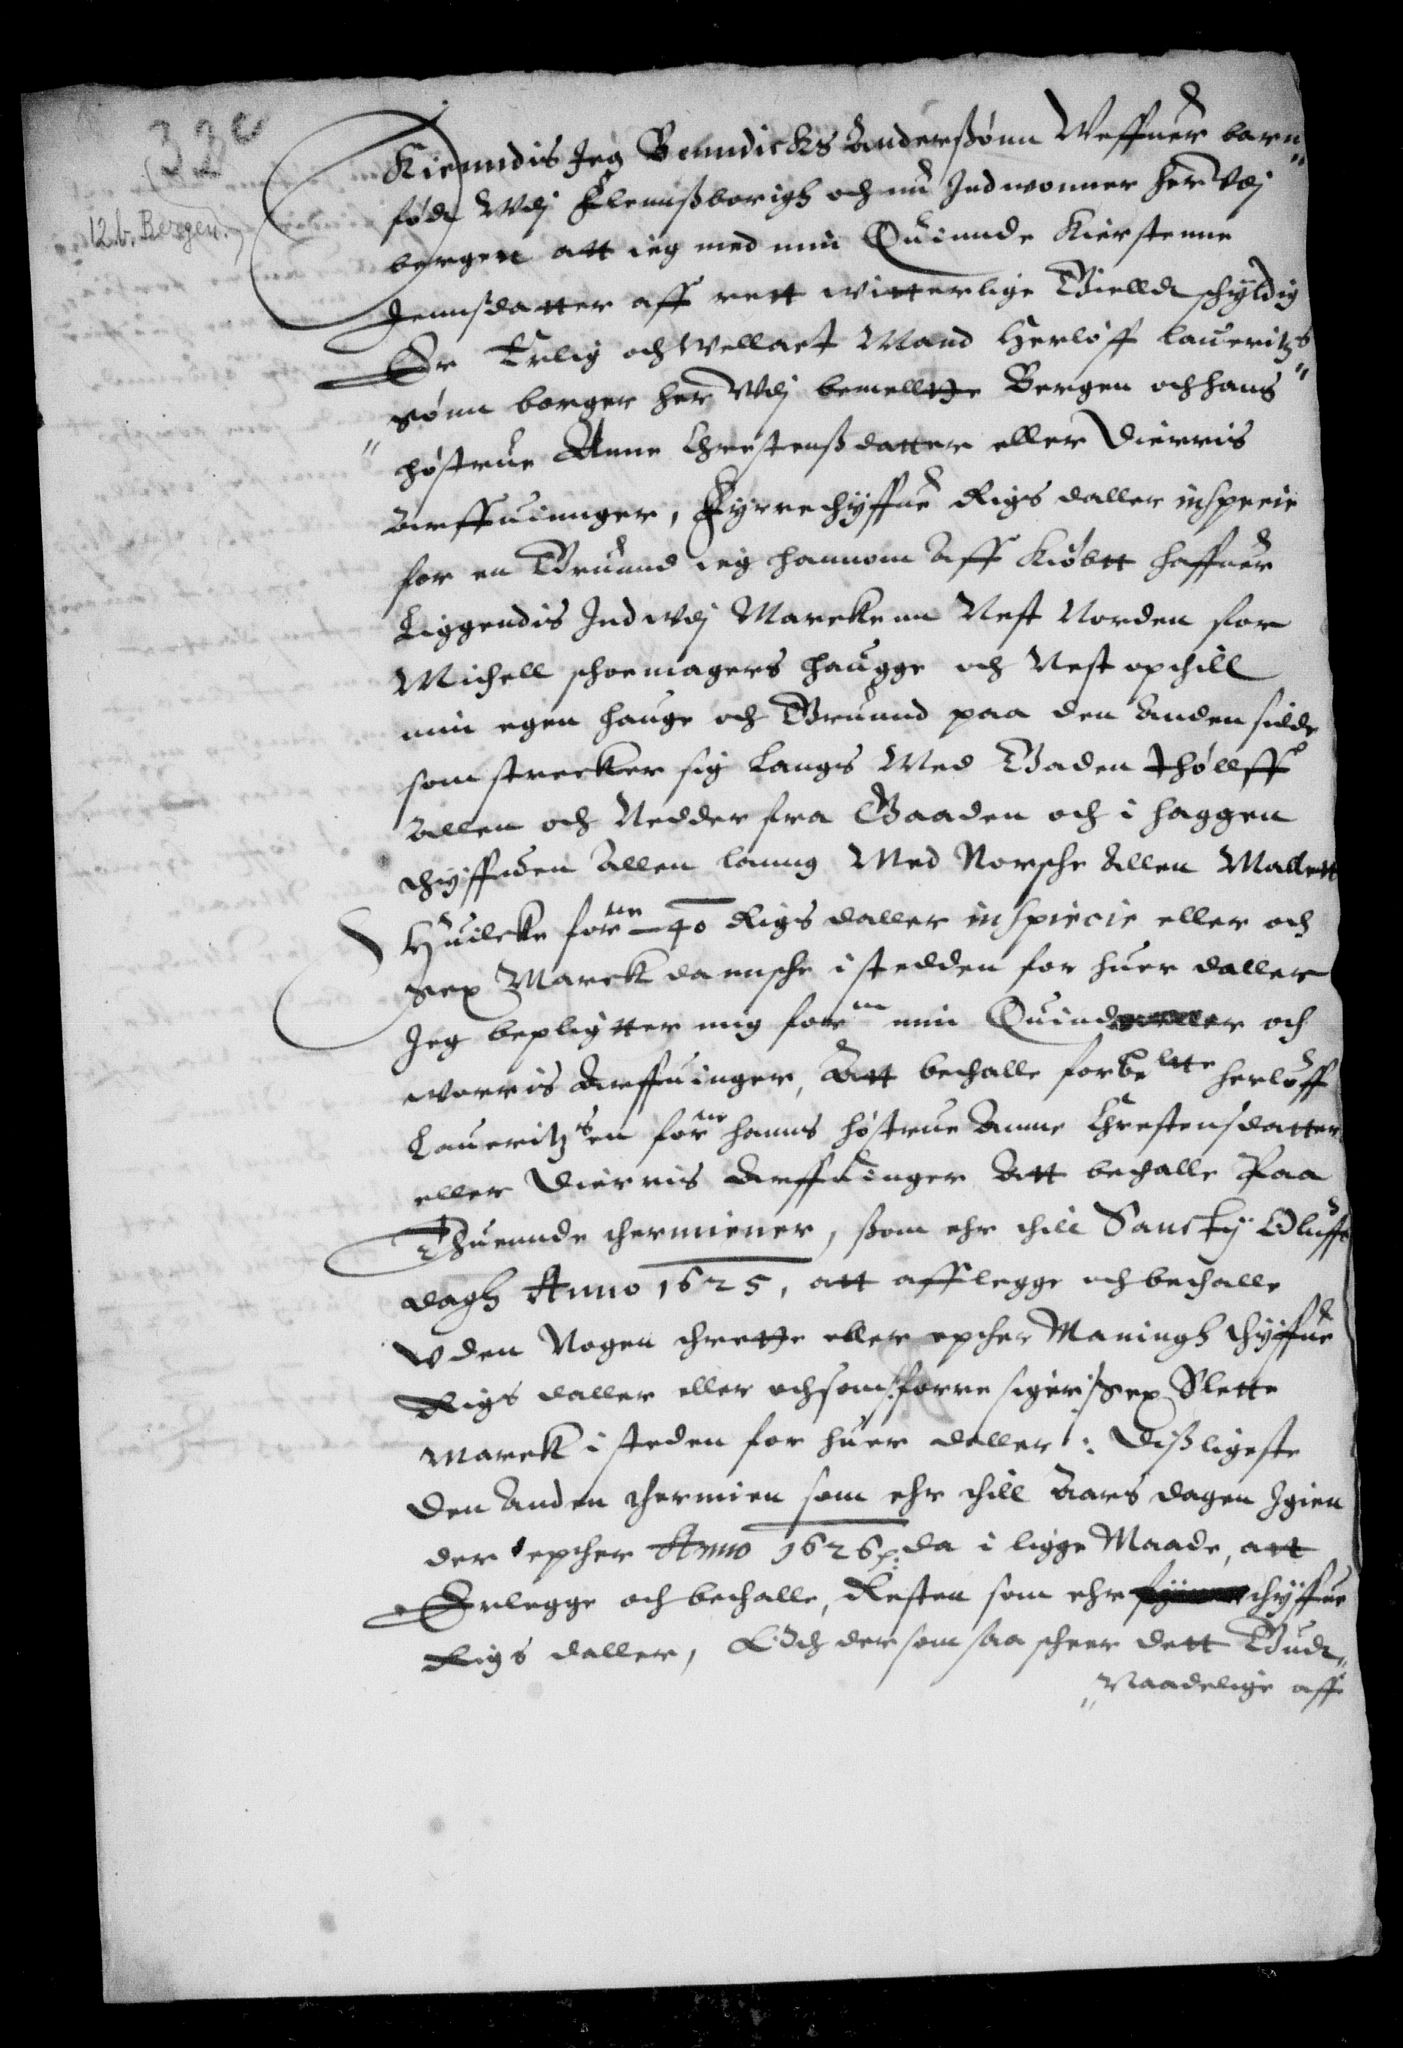 33c
12.b. Bergen.
Kienndis Jeg Benndicks Anderßønn Weffuer barn"
fød Vdj Flennißborigh och nu Jndwonner her Vdj
bergen att ieg med min Quinde Kierstenne
Jennsdatter aff rett witterlige Gielld schyldig
Er Erlig och Wellact Mand Herløff laueritz"
sønn borger her Vdj bemelltte Bergen och hans
"høstrue Anne Chrestenß datter eller dierris
Arffuinnger, Fyrrechyffue Rigs daller inspecie
for en Grunnd ieg hannom Aff Kiøbtt haffuer
Liggendis Jnd wdj Marckenn Nest Norden for
Michell schoemagers haugge och Nest opthill
min egen hauge och Grunnd paa den Anden side
som strecker sig langs Med Gaden thøllff
Allen och Nedder fra Gaaden och i haggen
thyffuen Allen lanng Med Norsche Allen Mallett
Huilcke forne 40 Rigs daller inspiecie eller och
sex Marck dannsche i stedden for huer daller
Jeg bepligtter mig forne min Quinde och
worris Arffuinger, Att bethalle forbeltte herløff
Laueritzsen forne hanns høstrue Anne Chrestensdatter
eller dierris Arffuinger Att bethalle Paa
Thuennde thermiener, ßom ehr thill Sancty Oluffs
dagh Anno 1625, att afflegge och bethalle
vden Nogen thrette eller epther Maningh thyffue
Rigs daller eller och som /: forre siger :/ sex Slette
Marck i steden for huer daller : dißligeste
den Anden thermien som ehr thill Aars dagen Jgien
der epther Anno 1626 p: da i ligge Maade, att
Erlegge och bethalle, Resten som ehr thyffue
Rigs daller, Och der som saa scheer dett Gud"
"Naadelige aff